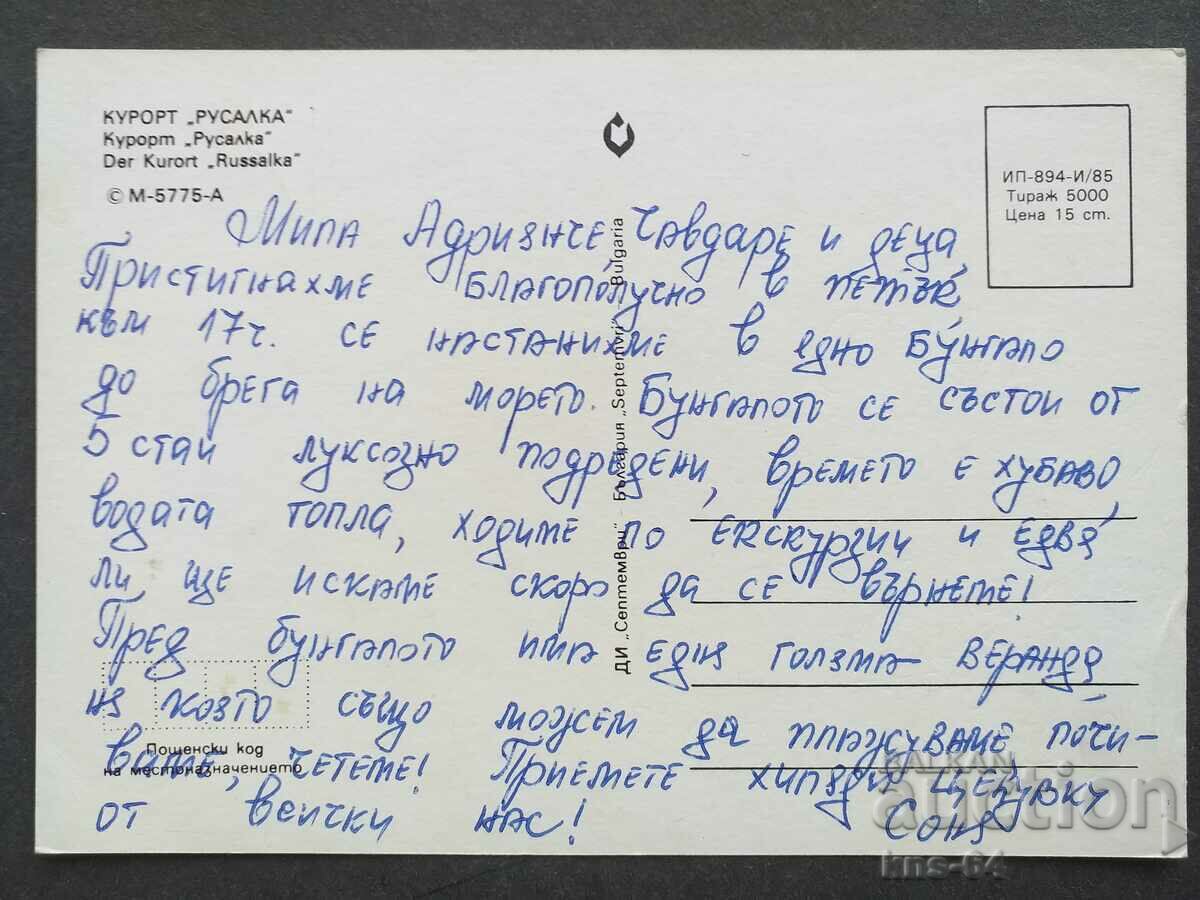 КУРОРТ „РУСАЛКА"
Курорт „Русалка"
Der Kurort „Russalka"
© М-5775-А
ИП-894-И/85
Тираж 5000
Цена 15 ст.
Мила Адриянче Чавдаре и деца,
Пристигнахме благополучно в петък
към 17ч. се настанихме в едно бунгало
до брега на морето. Бунгалото се състои от
5 стаи луксозно подредени, времето е хубаво,
водата топла, ходиме по екскурзии и едва
ли ще искаме скоро да се върнеме!
Пред бунгалото има една голяма веранда
на която също можем да плажуваме, почи-
ваме, четеме! Приемете хиляди целувки
от всички нас! Соня
ДИ „Септември" – България „Septemvri" – Bulgaria
Пощенски код
на местоназначението
BALKAN
auction
kns-64